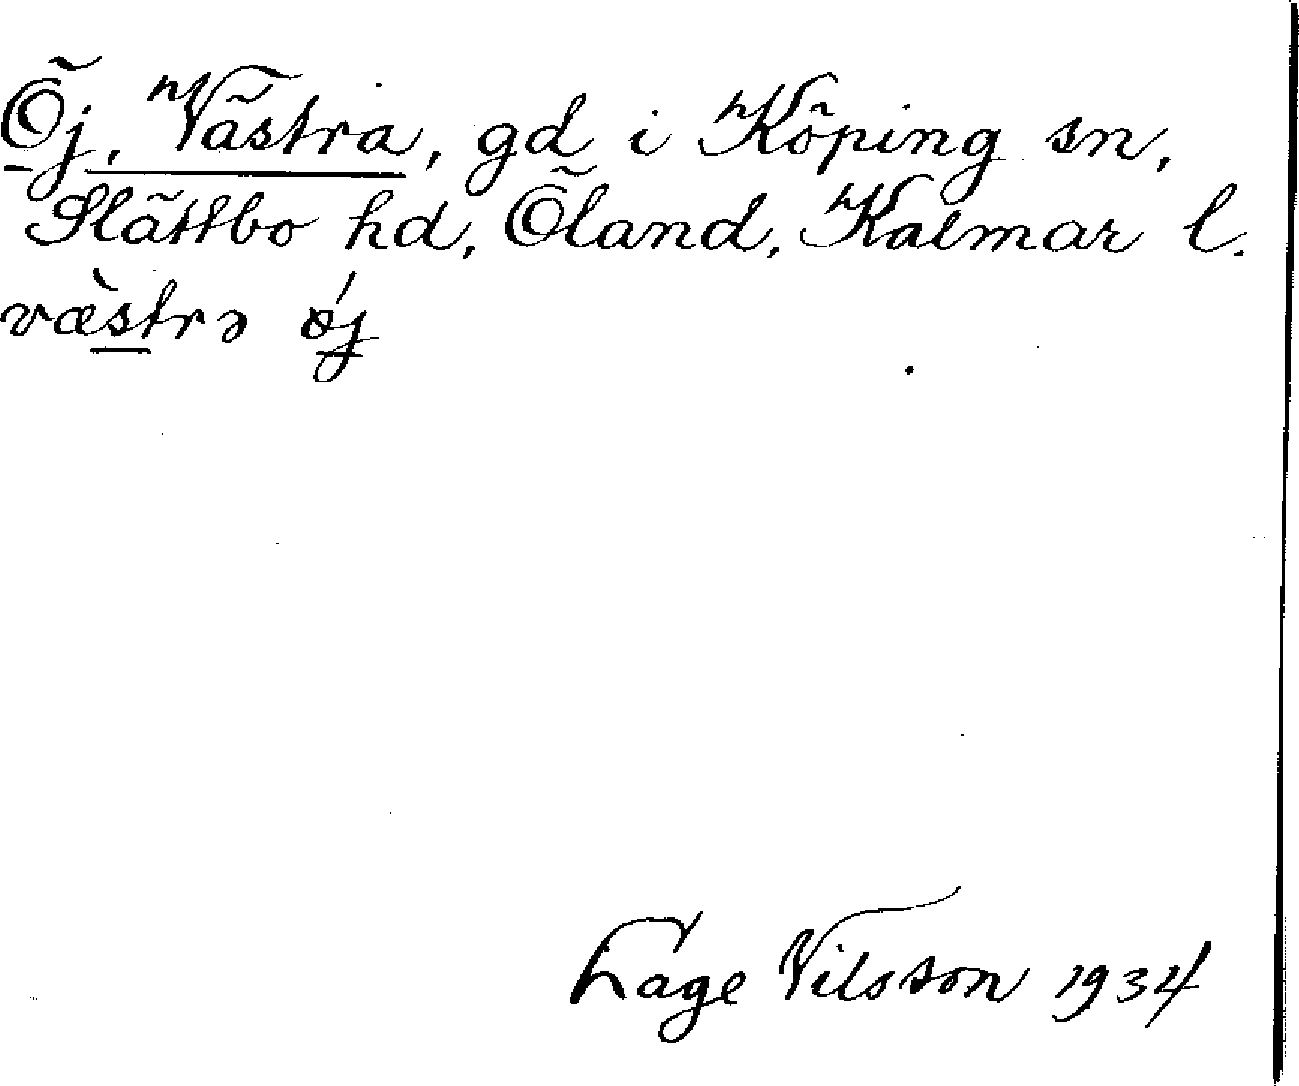 Öj, Västra, gd i Köping sn,
Slättbo hd, Öland, Kalmar l.
væ̀strə ǿj
Tage Nilsson 1934